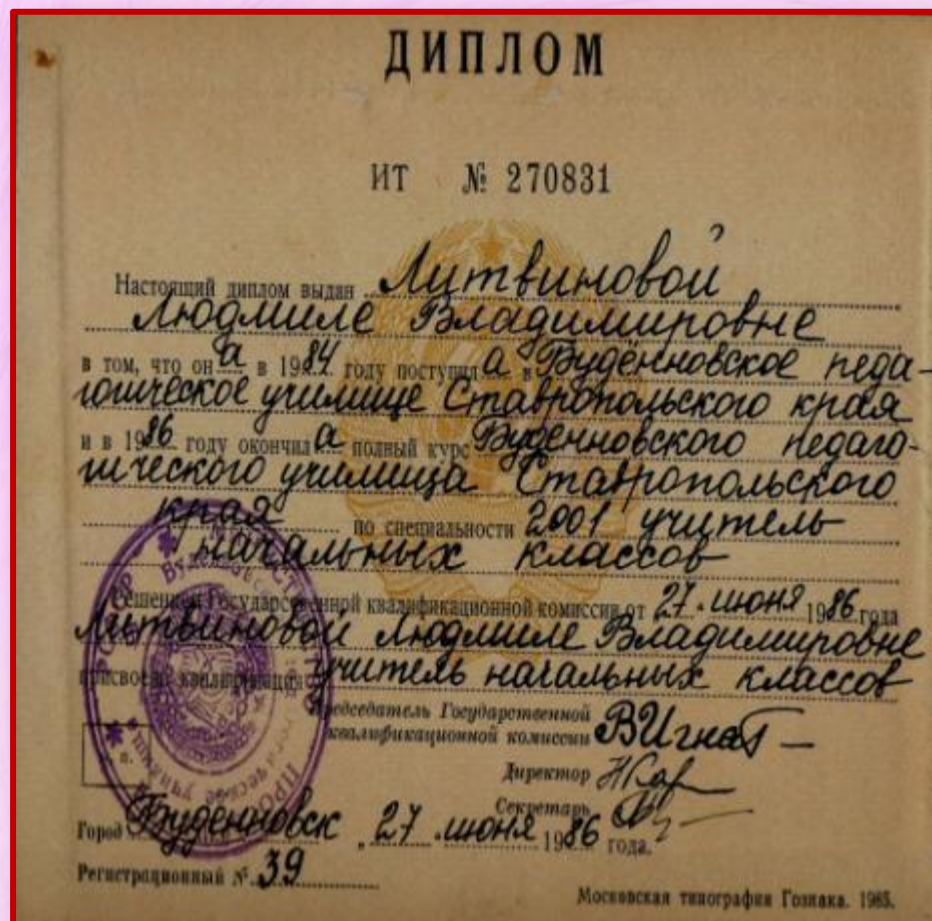 ДИПЛОМ
ИТ № 270831
Настоящий диплом выдан Литвиновой
Людмиле Владимировне
в том, что он а в 1984 году поступил а в Будённовское педа-
гогическое училище Ставропольского края
и в 1986 году окончил а полный курс Будённовского педаго-
гического училища Ставропольского
края по специальности 2001 учитель
начальных классов
Решением Государственной квалификационной комиссии от 27 июня 1986 года
Литвиновой Людмиле Владимировне
присвоена квалификация учитель начальных классов
Председатель Государственной
квалификационной комиссии
Директор
Секретарь
Город Будённовск, 27 июня 1986 года.
Регистрационный № 39
Московская типография Гознака. 1985.